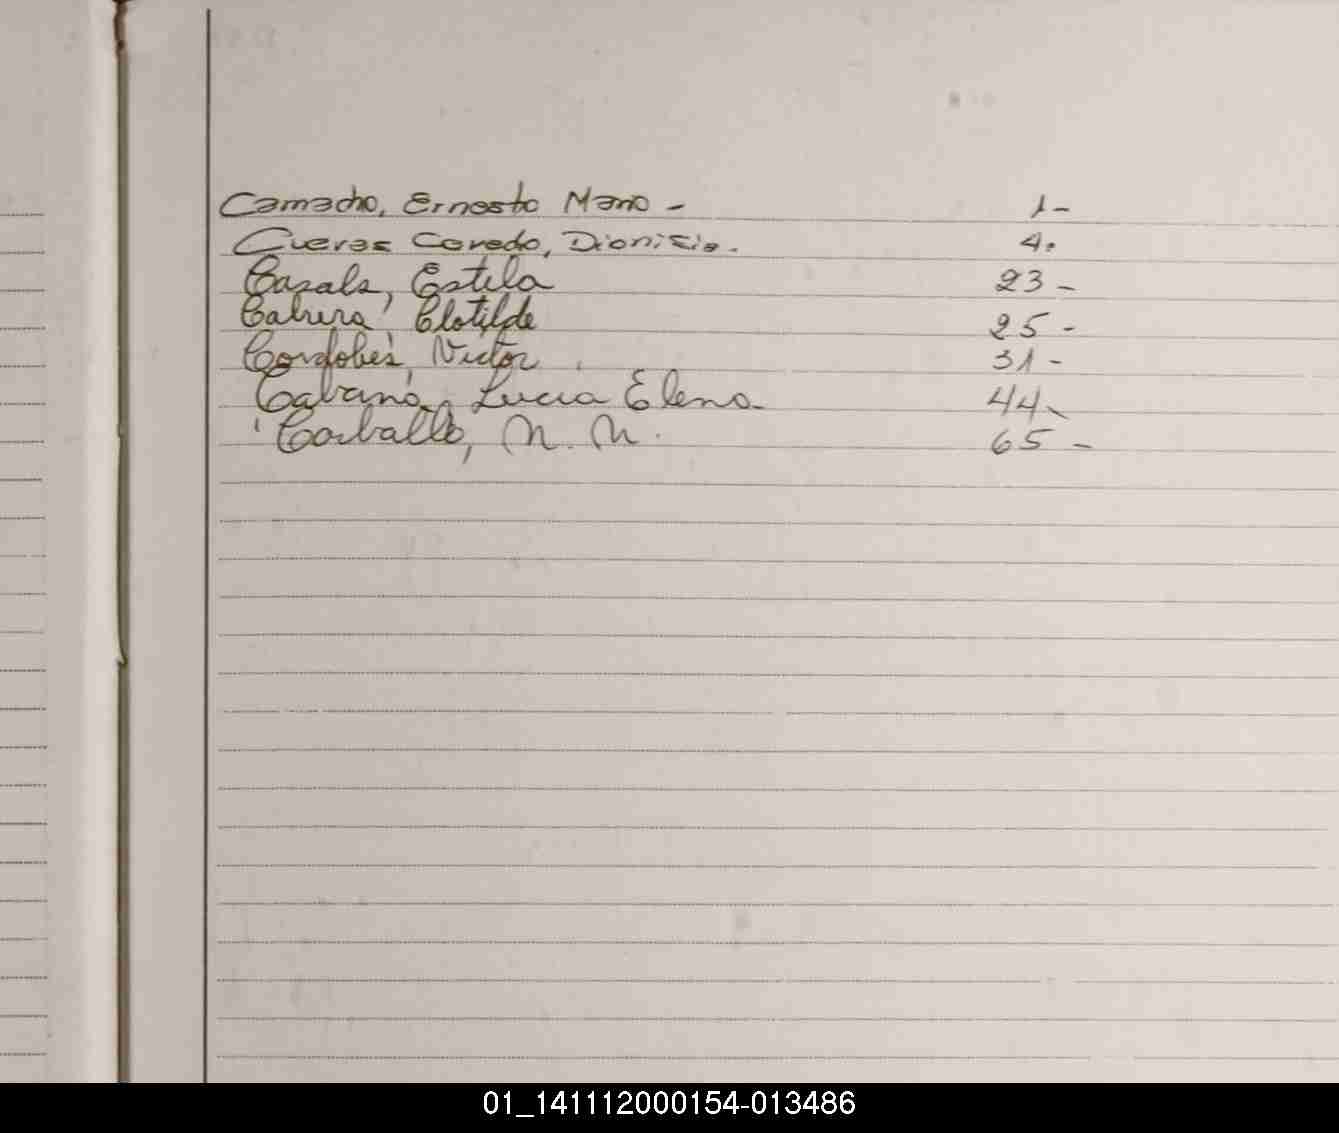 Camacho, Ernesto Mario - 1-
Cuevas Cavedo, Dionisia. 4.
Casals, Estela 23-
Cabrera, Clotilde 25-
Cordobés, Victor. 31-
Cabana, Lucia Elena 44-
Carballo, N. N. 65-
01_141112000154-013486